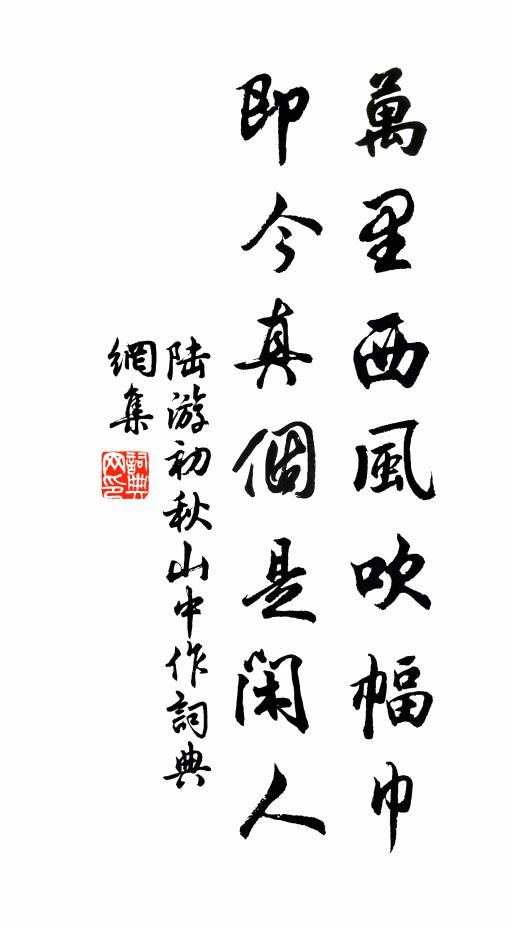 萬里西風吹幅巾
即今真個是閑人
陆游初秋山中作詞典
網集
詞典
网印